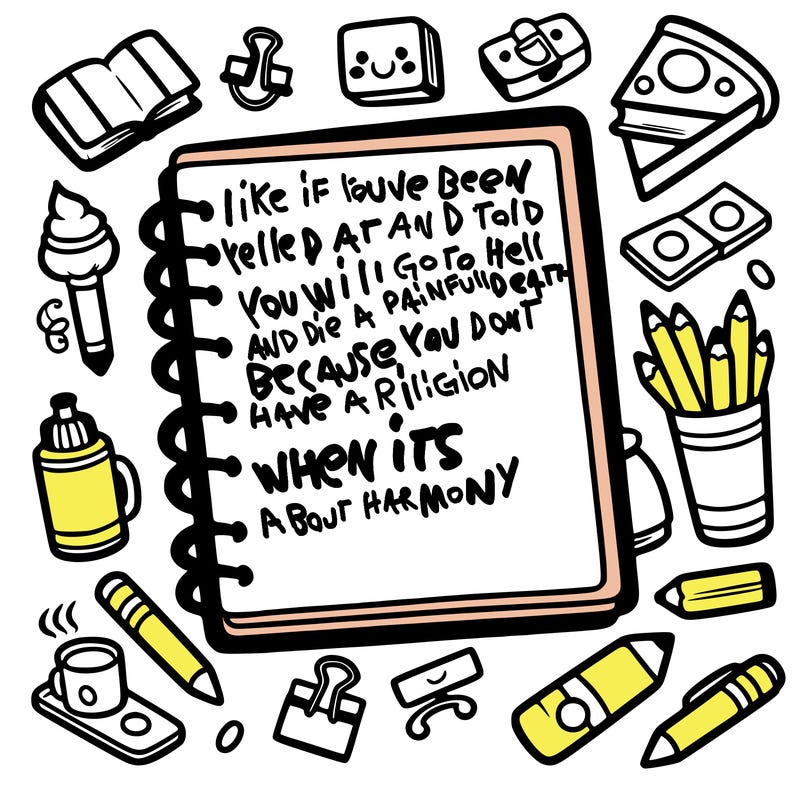 like iF YouVe BEEN
Yelled AT AND Told
You Will Go To Hell
AND Die A PAiNFull DeATH
BeCAUSe You DONT
HAVe A RiliGiON
WHeN iTS
ABOUT HARMONY